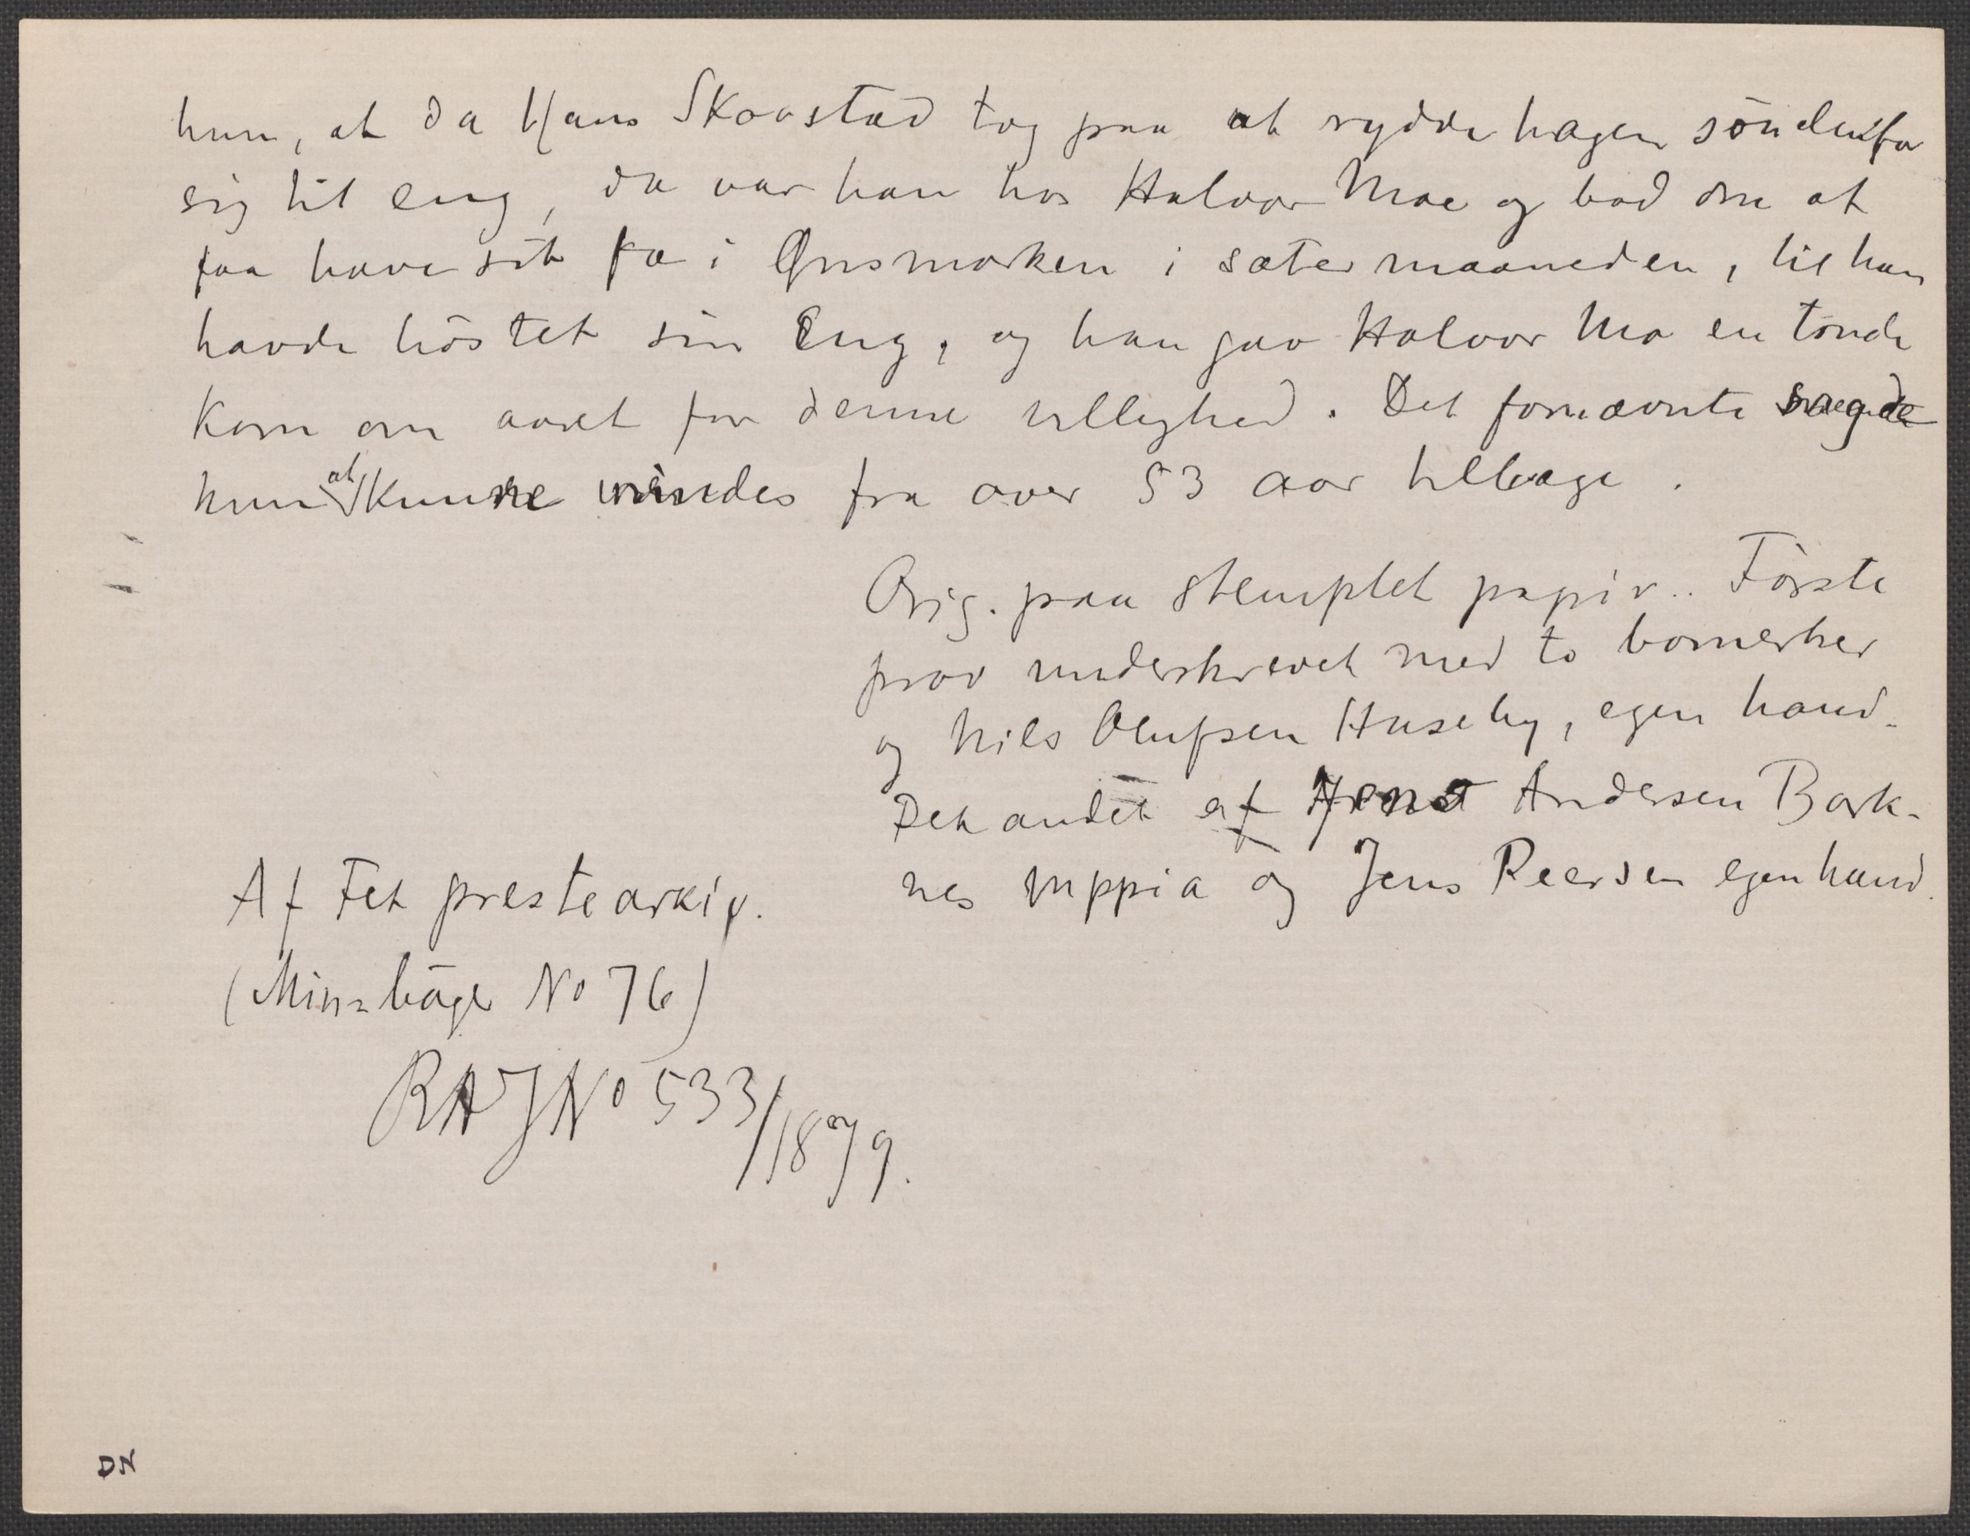 hun, at da Hans Skovstad tog paa at rydde hagen söndenfor
sig til eng, da var han hos Halvor Moe og bad om at
faa have sit fæ i Gnsmorken i sætermaaneden, til han
havde höstet sin Eng, og han gav Halvor Mo en tönde
Korn om aaret for denne villighed. Det fornævnte sagde
hun at kunne mindes fra over 53 aar tilbage.
Orig. paa stemplet papir.. Förste
prov underskrevet med to bomerker
og Nils Olufsen Huseby, egen haand.
Det andet af Andersen Bork-
nes mppia og Jens Reersen egen haand.
Af Fet prestearkiv.
(Min= böger No 76)
RA J No 533/1879.
DN